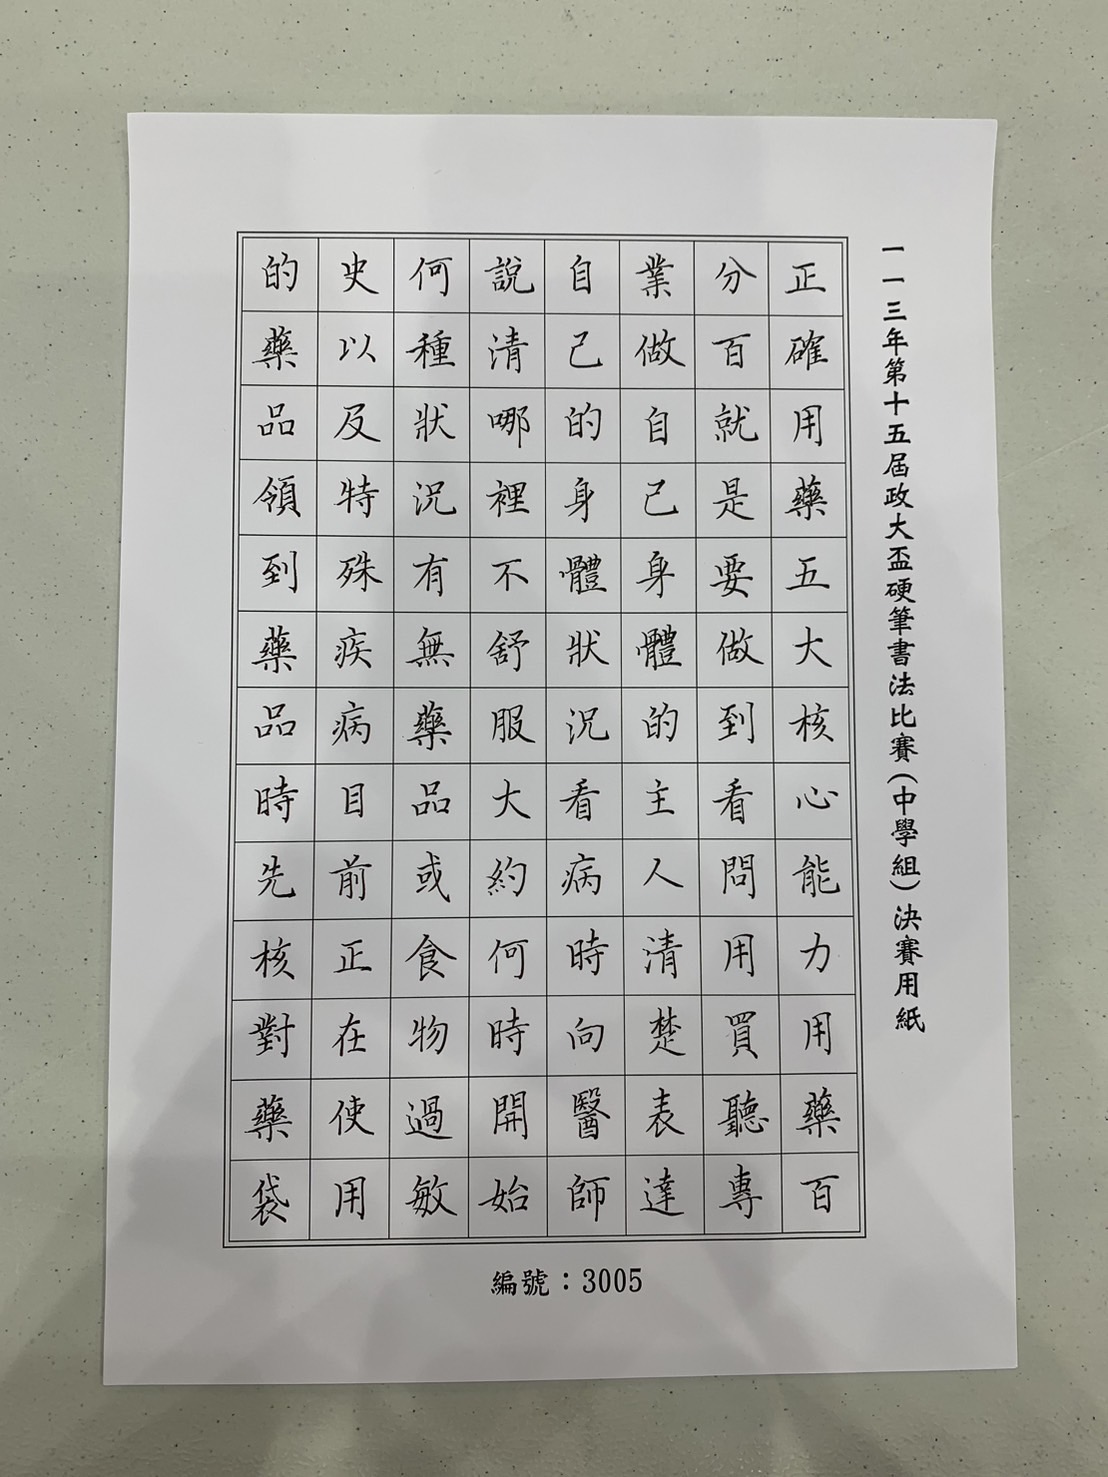 一一三年第十五屆政大盃硬筆書法比賽(中學組)決賽用紙
正確用藥五大核心能力用藥百
分百就是要做到看問用買聽專
業做自己身體的主人清楚表達
自己的身體狀況看病時向醫師
說清哪裡不舒服大約何時開始
何種狀況有無藥品或食物過敏
史以及特殊疾病目前正在使用
的藥品領到藥品時先核對藥袋
編號：3005